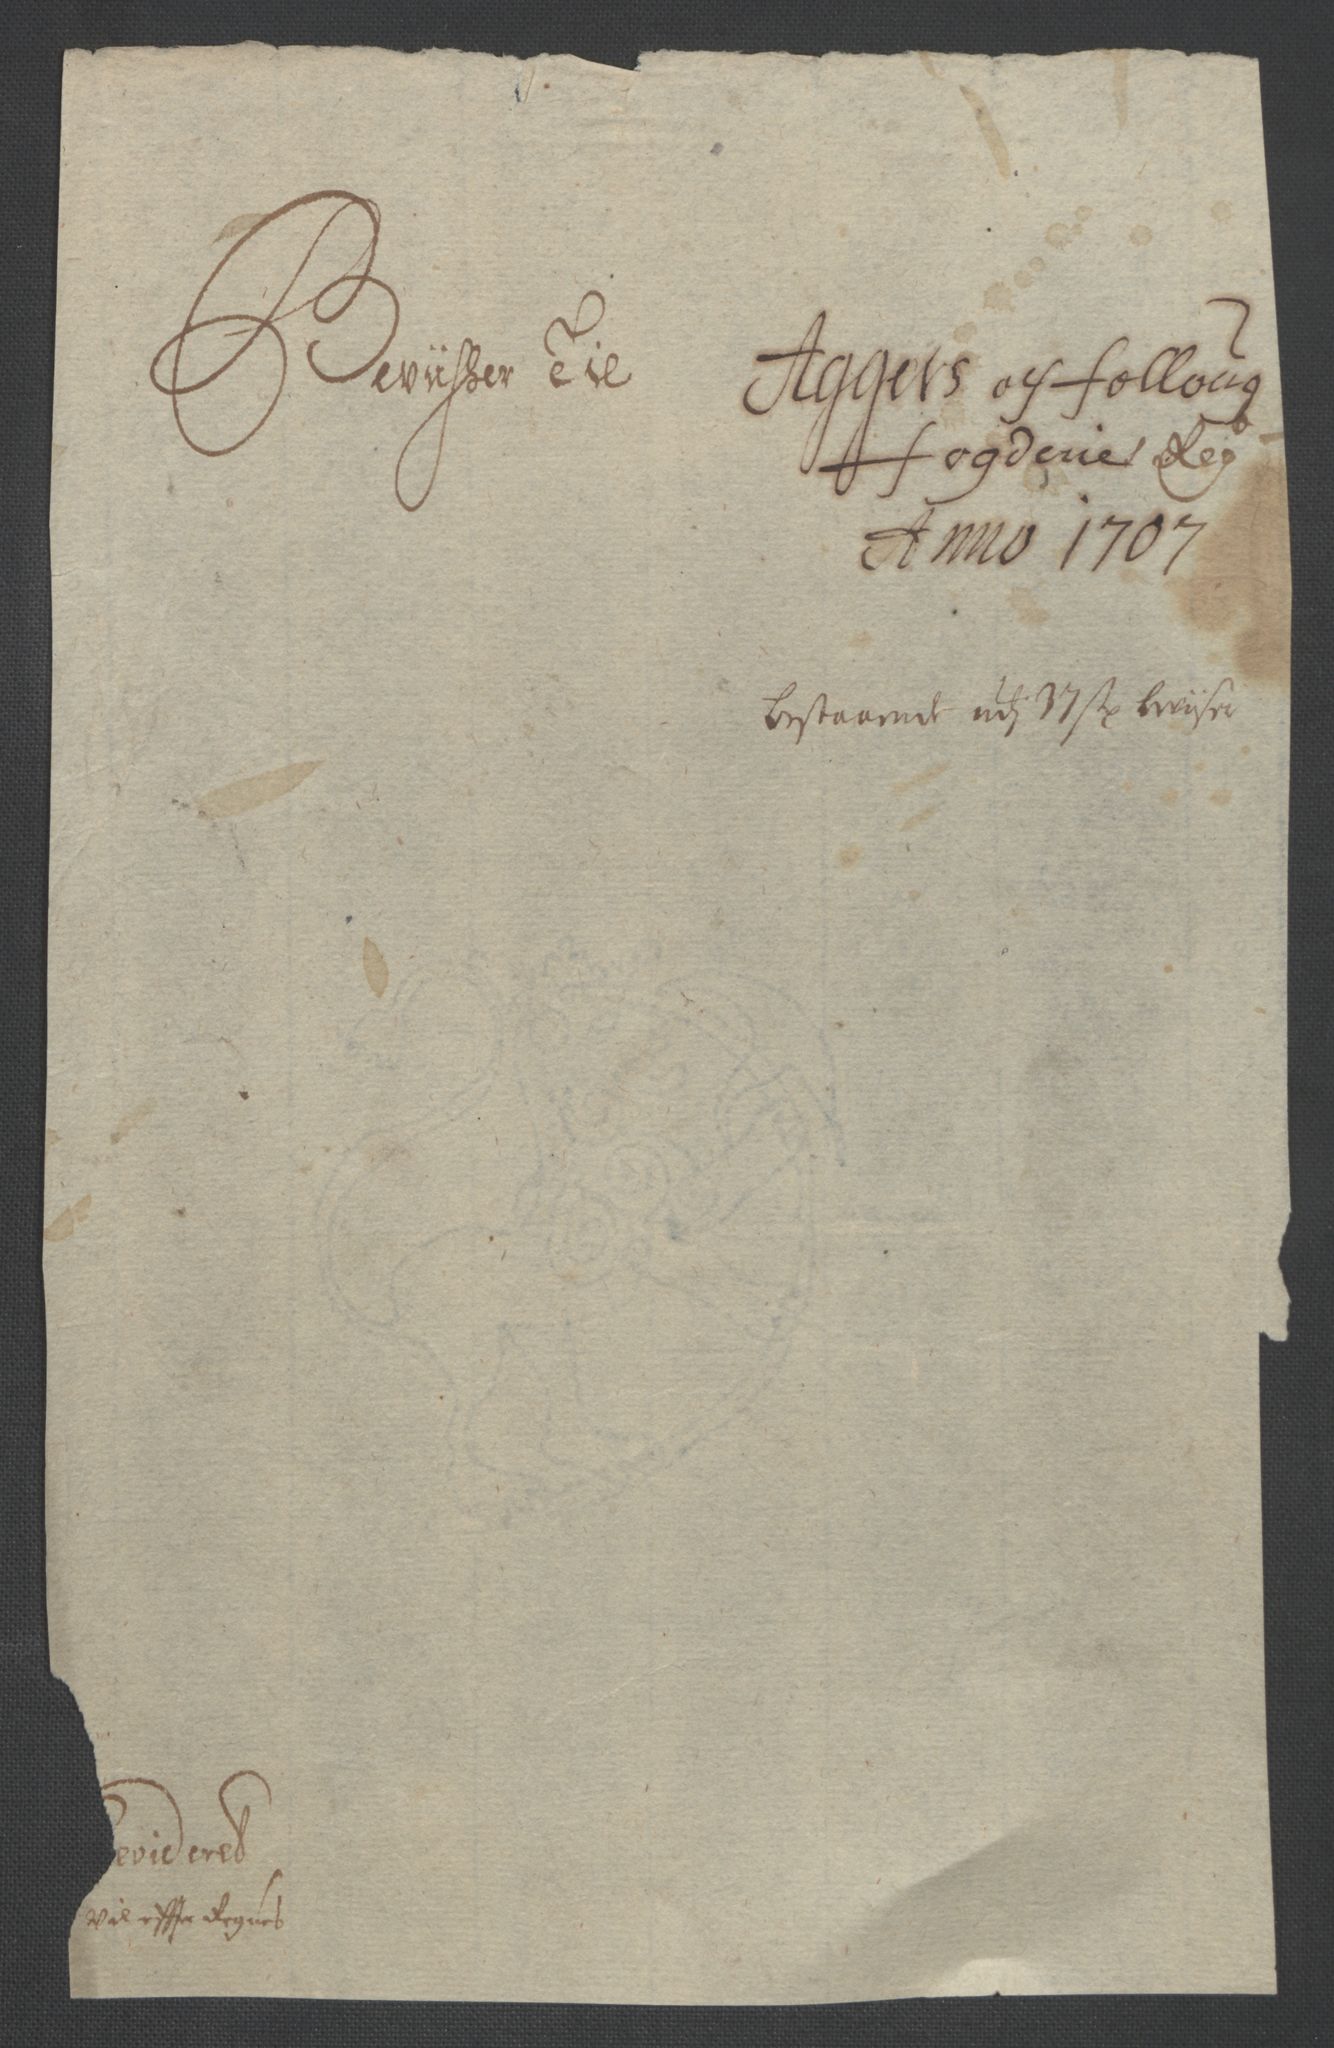 Beviisser Til
Aggers og folloug
fogderies Reg
Anno 1707
bestaaende udj 37 stp beviiser
Revideret
vil efter Regnes